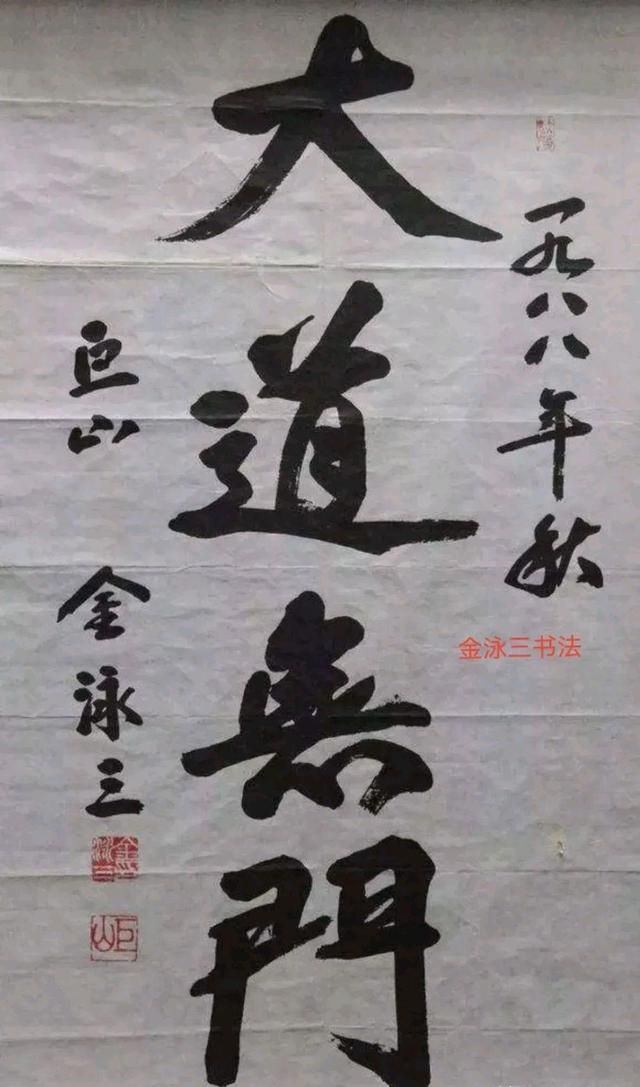 一九八八年秋
大道無門
巨山 金泳三
金泳三书法
金泳三
巨山